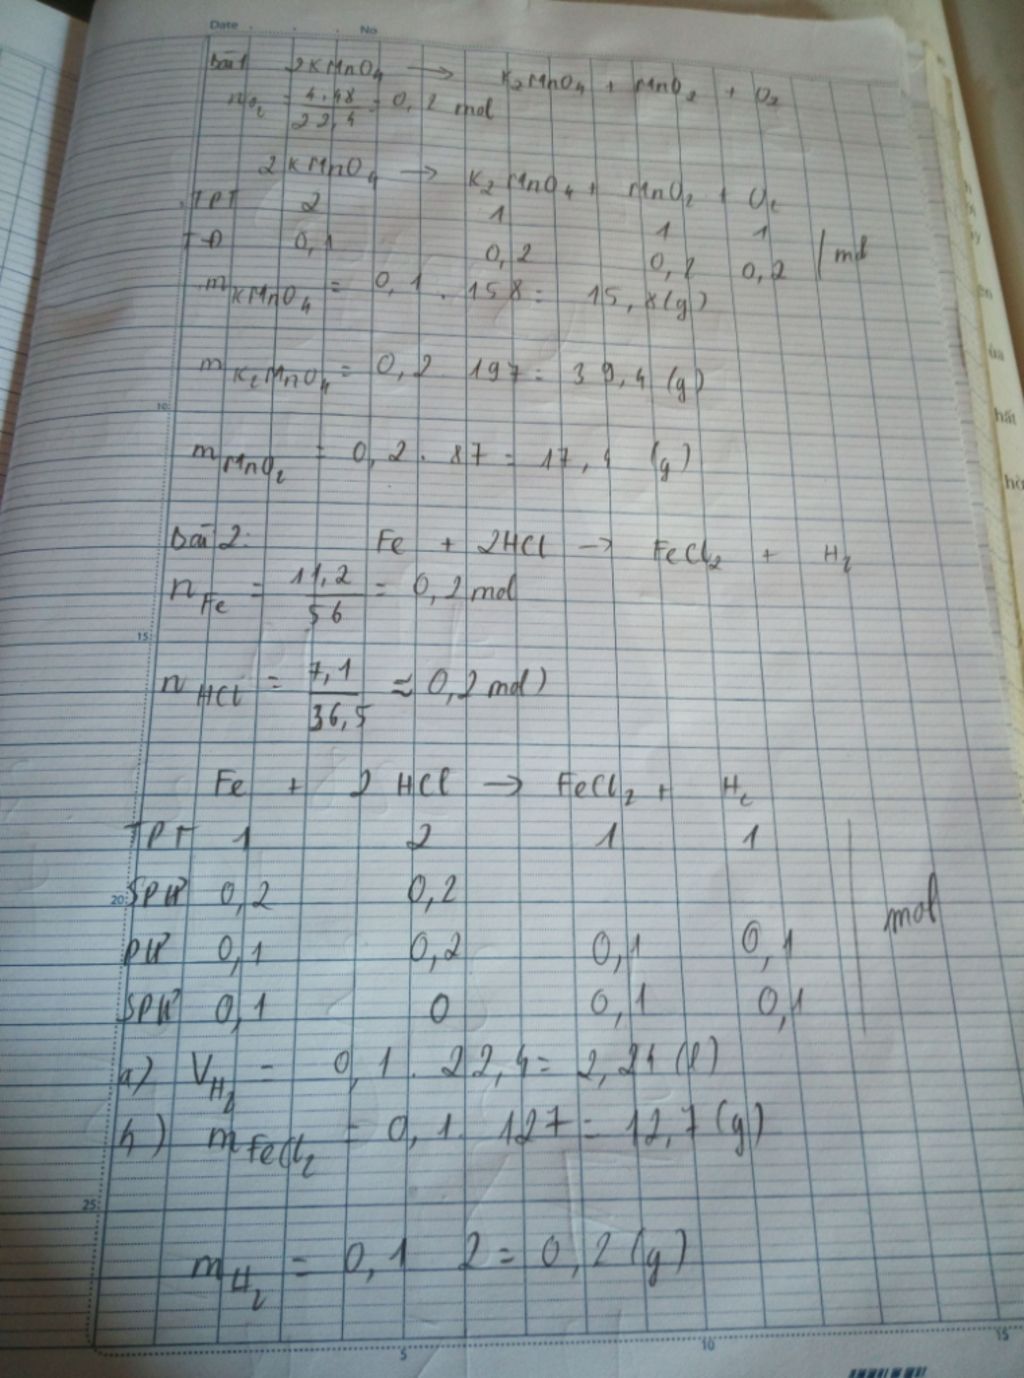 Date No
Bài 1 2KMnO4 → K2MnO4 + MnO2 + O2
nO2 = 4,48/22,4 = 0,2 mol
2KMnO4 → K2MnO4 + MnO2 + O2
TPT 2 1 1 1
0,1 0,2 0,2 0,2 mol
mKMnO4 = 0,1 . 158 = 15,8 (g)
mK2MnO4 = 0,2 197 = 39,4 (g)
10
mMnO2 = 0,2 . 87 = 17,4 (g)
Bài 2: Fe + 2HCl → FeCl2 + H2
nFe = 11,2/56 = 0,2 mol
15
nHCl = 7,1/36,5 ≈ 0,2 mol)
Fe + 2 HCl → FeCl2 + H2
TPT 1 2 1 1
20 SPƯ 0,2 0,2 mol
PƯ 0,1 0,2 0,1 0,1
SPƯ 0,1 0 0,1 0,1
a) VH2 = 0,1 . 22,4 = 2,24 (l)
b) mFeCl2 = 0,1 . 127 = 12,7 (g)
25
mH2 = 0,1 2 = 0,2 (g)
5 10 15